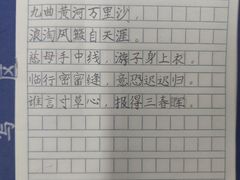 九曲黄河万里沙，
浪淘风簸自天涯。
慈母手中线，游子身上衣。
临行密密缝，意恐迟迟归。
谁言寸草心，报得三春晖。